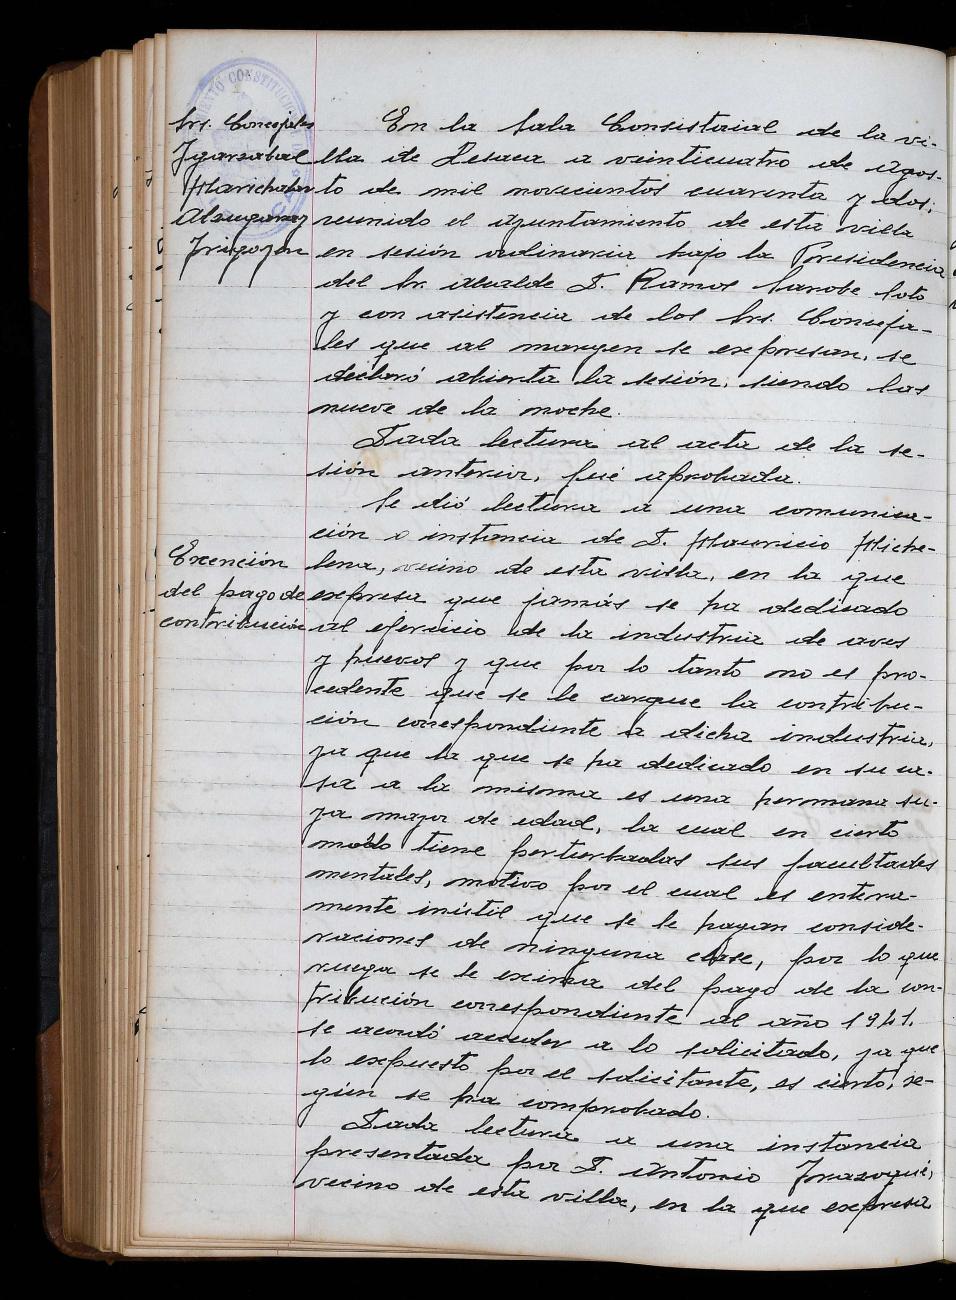 AYUNTAMIENTO CONSTITUCIONAL
Srs. Concejales
Igarzabal
Marichalar
Alzugaray
Irigoyen
En la Sala Consistorial de la vi-
lla de Lesaca a veinticuatro de agos-
to de mil novecientos cuarenta y dos;
reunido el Ayuntamiento de esta villa
en sesión ordinaria bajo la Presidencia
del Sr. alcalde D. Ramos Sarobe Soto
y con asistencia de los Srs. Conceja-
les que al margen se expresan, se
declaró abierta la sesión, siendo las
nueve de la noche.
Dada lectura al acta de la se-
sión anterior, fué aprobada.
Se dió lectura a una comunica-
ción o instancia de D. Mauricio Miche-
lena, vecino de esta villa, en la que
expresa que jamás se ha dedicado
al ejercicio de la industria de aves
y huevos y que por lo tanto no es pro-
cedente que se le cargue la contribu-
ción correspondiente a dicha industria,
ya que la que se ha dedicado en su ca-
sa a la misma es una hermana su-
ya mayor de edad, la cual en cierto
modo tiene perturbadas sus facultades
mentales, motivo por el cual es entera-
mente inútil que se le hagan conside-
raciones de ninguna clase, por lo que
ruega se le exima del pago de la con-
tribución correspondiente al año 1941.
Se acordó acceder a lo solicitado, ya que
lo expuesto por el solicitante, es cierto, se-
gún se ha comprobado.
Exención
del pago de
contribución
Dada lectura a una instancia
presentada por D. Antonio Irazoqui,
vecino de esta villa, en la que expresa